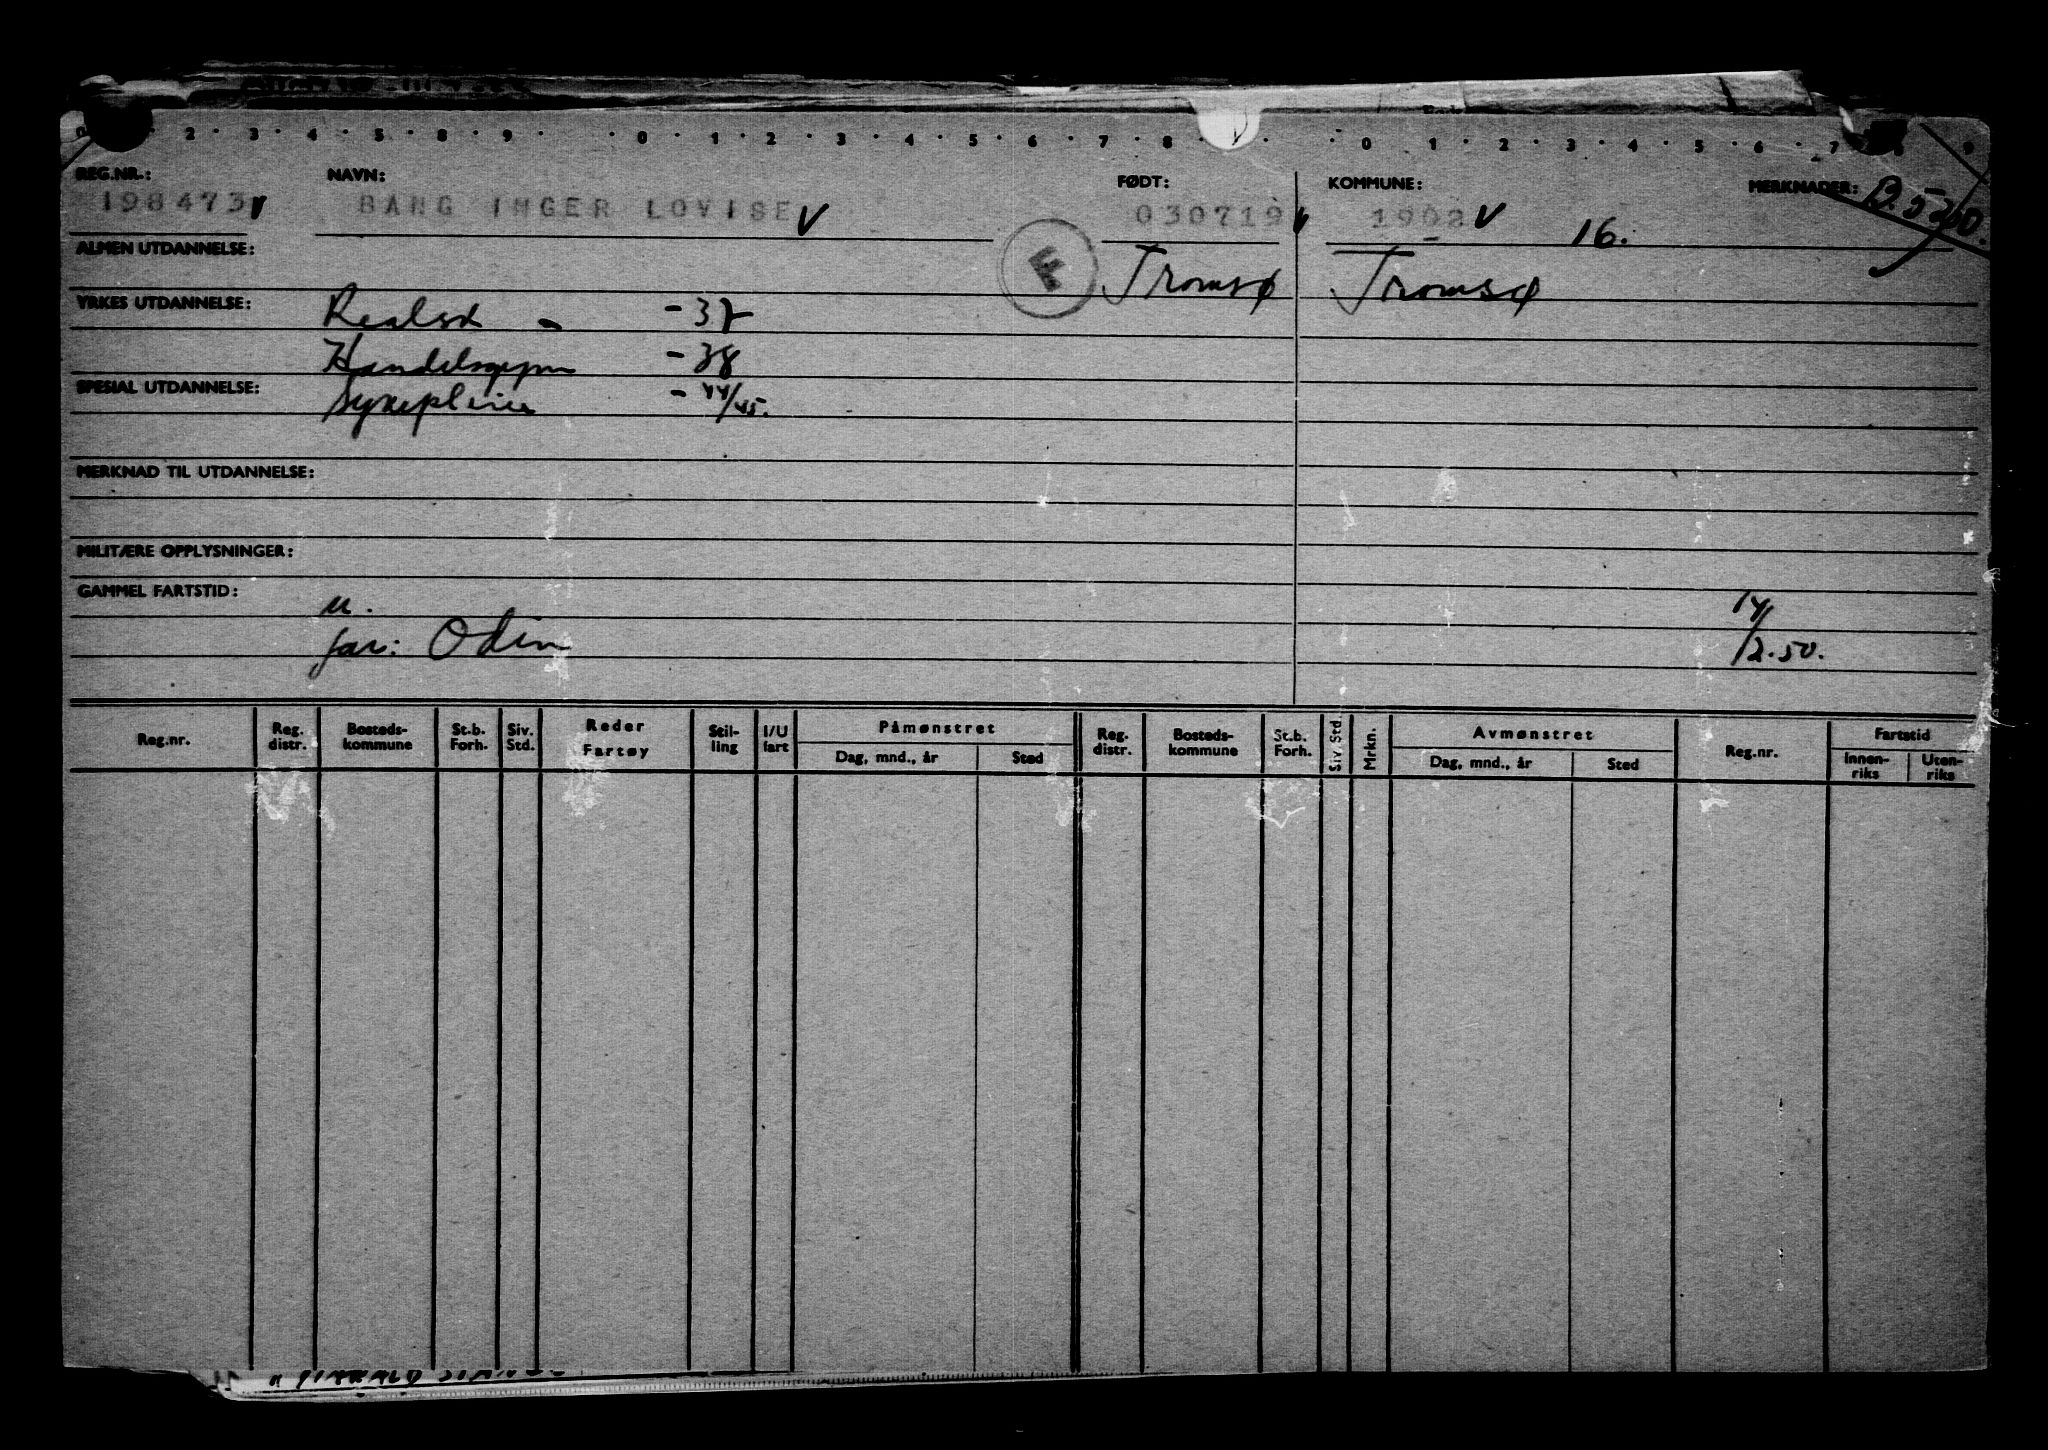 2 . 3 . 4 . 5 . 8 . 9 . . 0 . 1 . 2 . 3 . 4 . 5 . 6 . 7 . 8 . . . 0 . 1 . 2 . 3 . 4 . 5 . 6 . 7 8 9
REG.NR.: NAVN: FØDT: KOMMUNE: MERKNADER: B. 5300.
198473 V BANG INGER LOVISE V 030719 V 1902 V 16.
ALMEN UTDANNELSE: F Tromsø Tromsø
YRKES UTDANNELSE: Realsk - -37
Handelsgym -38
SPESIAL UTDANNELSE: Sykepleier - 44/45.
MERKNAD TIL UTDANNELSE:
MILITÆRE OPPLYSNINGER:
GAMMEL FARTSTID:
u. 14/
far: Odin 12.50.
Reg.nr. Reg. distr. Bosteds-kommune St.b. Forh. Siv. Std. Reder Fartøy Stil-ling I/U fart Påmønstret Reg. distr. Bosteds-kommune St.b. Forh. Siv. Std. Mrkn. Avmønstret Reg.nr. Fartstid
Dag, mnd., år Sted Dag, mnd., år Sted Innen-riks Uten-riks